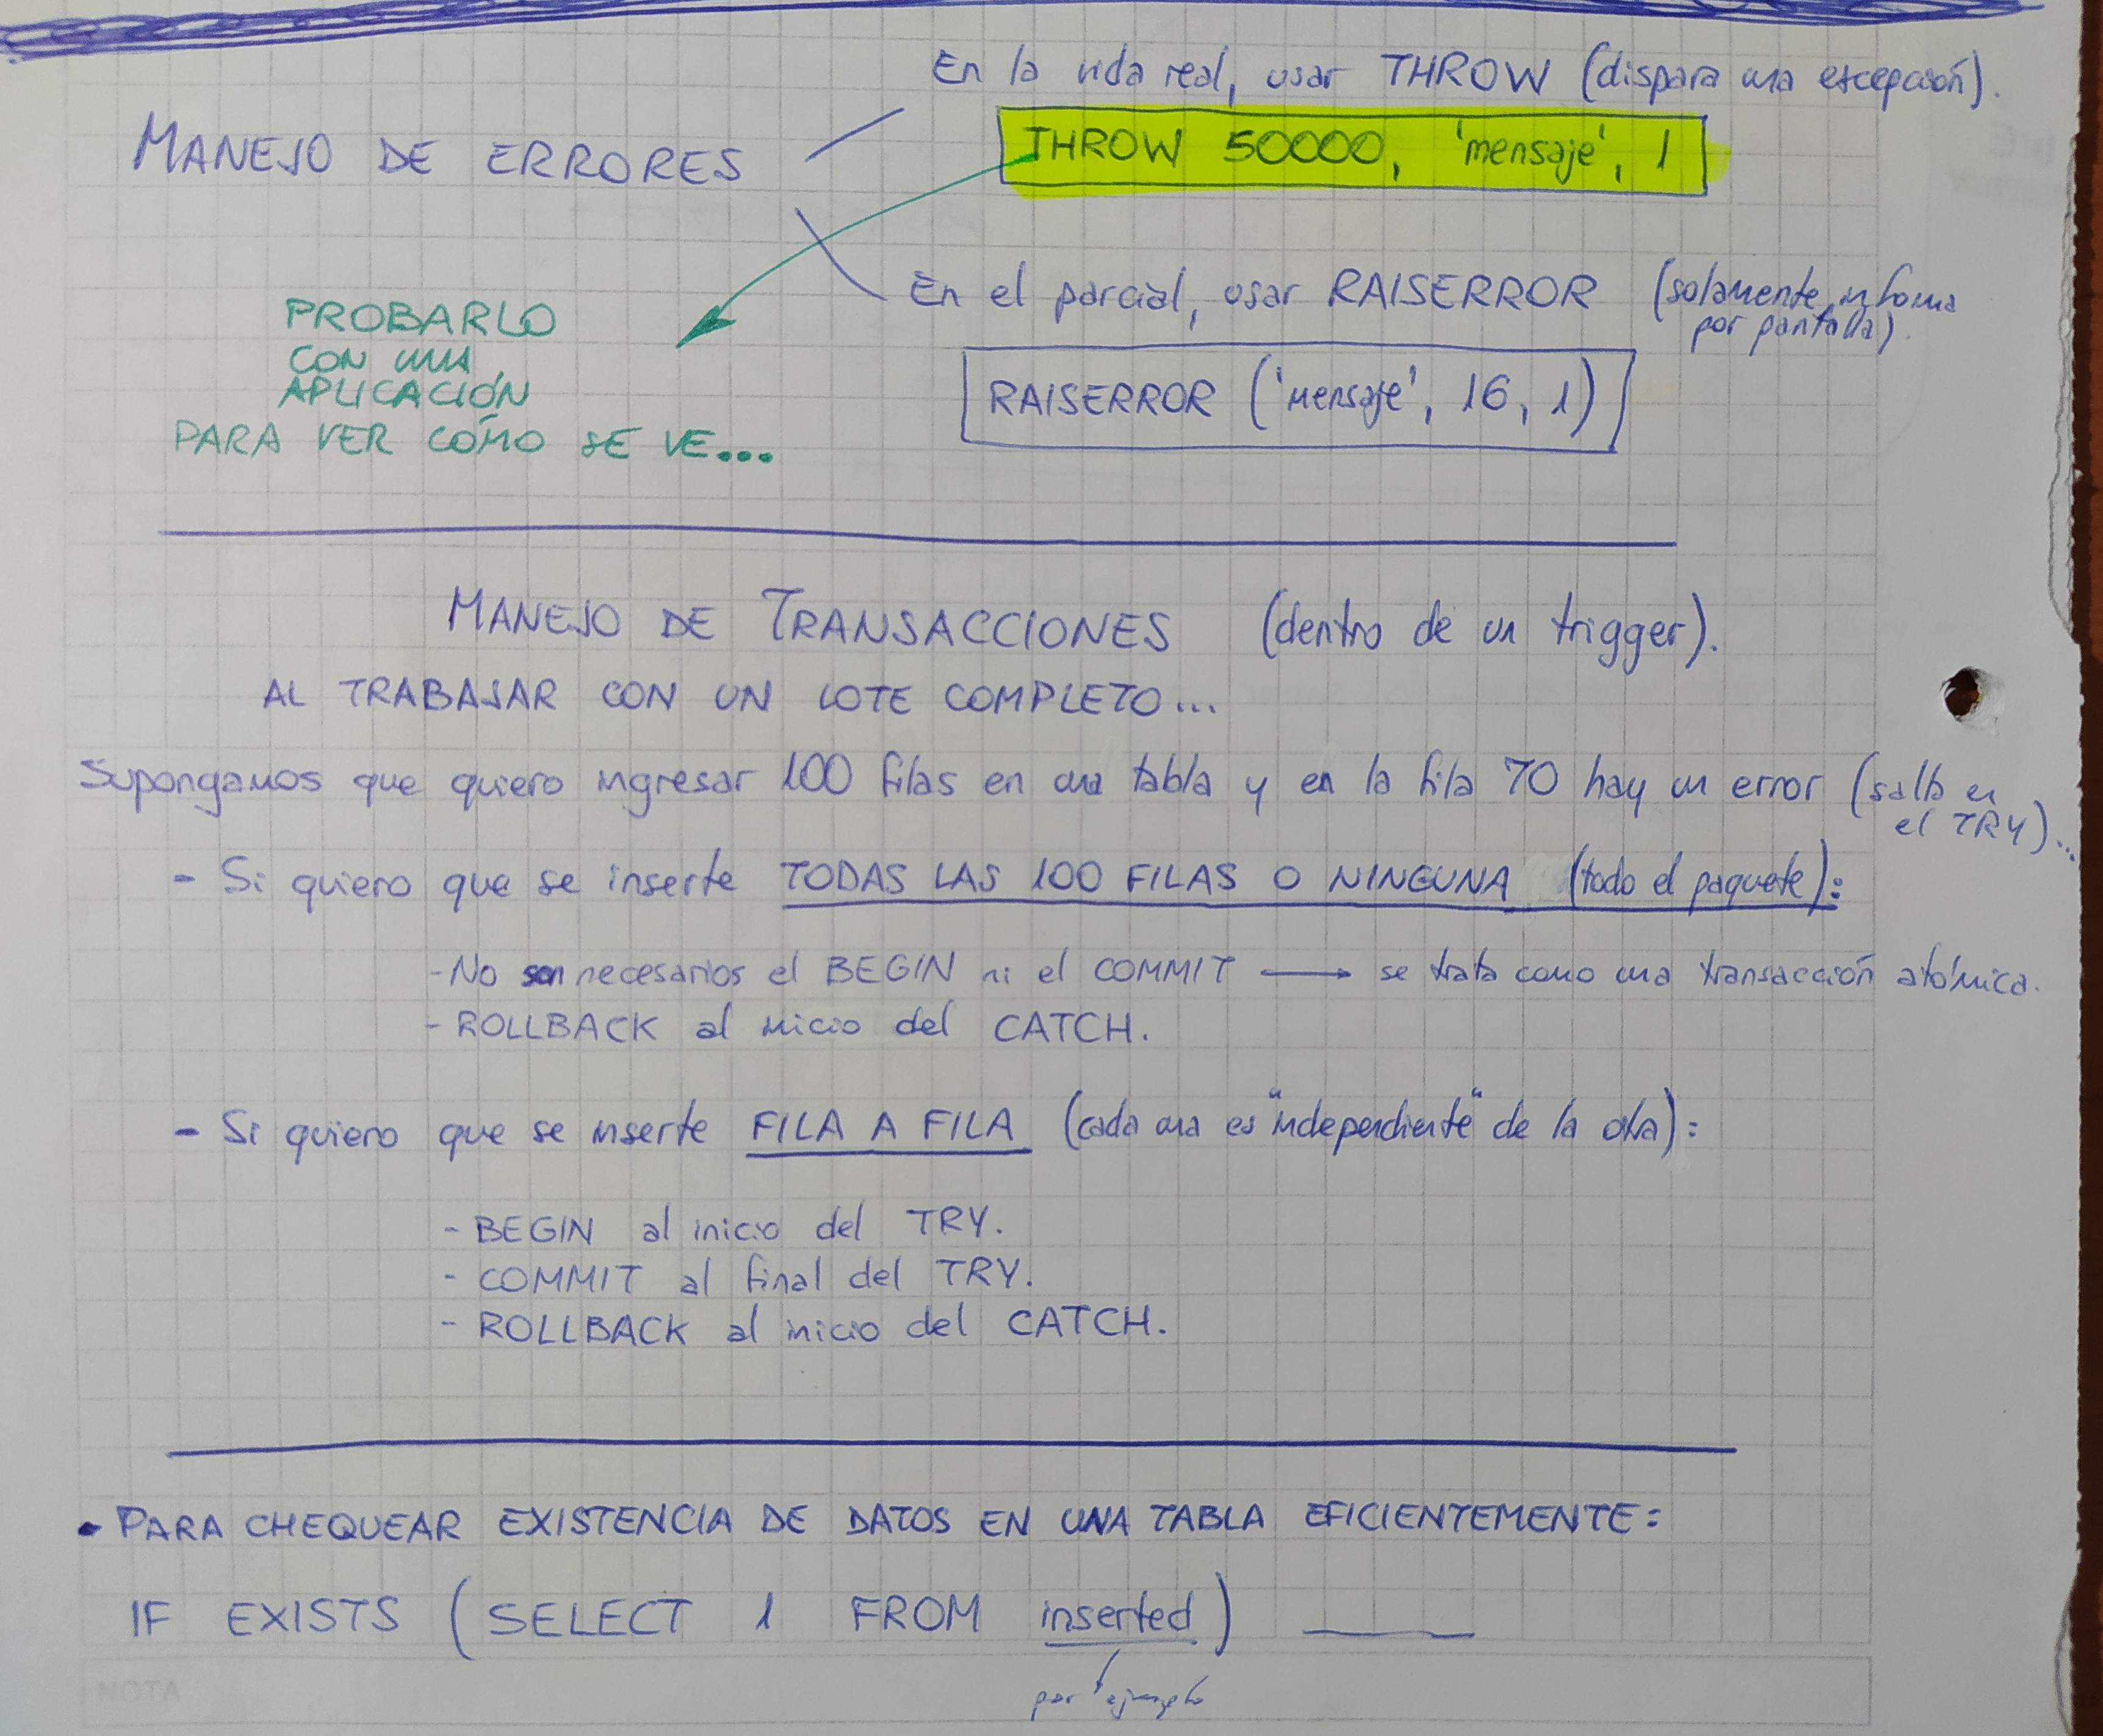 En la vida real, usar THROW (dispara una excepción).
MANEJO DE ERRORES
THROW 50000, 'mensaje', 1
En el parcial, usar RAISERROR (solamente informa
por pantalla).
RAISERROR ('mensaje', 16, 1)
PROBARLO
CON UNA
APLICACIÓN
PARA VER CÓMO SE VE...
MANEJO DE TRANSACCIONES (dentro de un trigger).
AL TRABAJAR CON UN LOTE COMPLETO...
Supongamos que quiero ingresar 100 filas en una tabla y en la fila 70 hay un error (salta en
el TRY)...
- Si quiero que se inserte TODAS LAS 100 FILAS O NINGUNA (todo el paquete):
- No son necesarios el BEGIN ni el COMMIT → se trata como una transacción atómica.
- ROLLBACK al inicio del CATCH.
- Si quiero que se inserte FILA A FILA (cada una es "independiente" de la otra):
- BEGIN al inicio del TRY.
- COMMIT al final del TRY.
- ROLLBACK al inicio del CATCH.
• PARA CHEQUEAR EXISTENCIA DE DATOS EN UNA TABLA EFICIENTEMENTE:
IF EXISTS (SELECT 1 FROM inserted) ____
por ejemplo